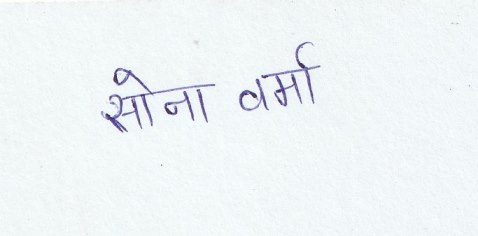 सोना वर्मा